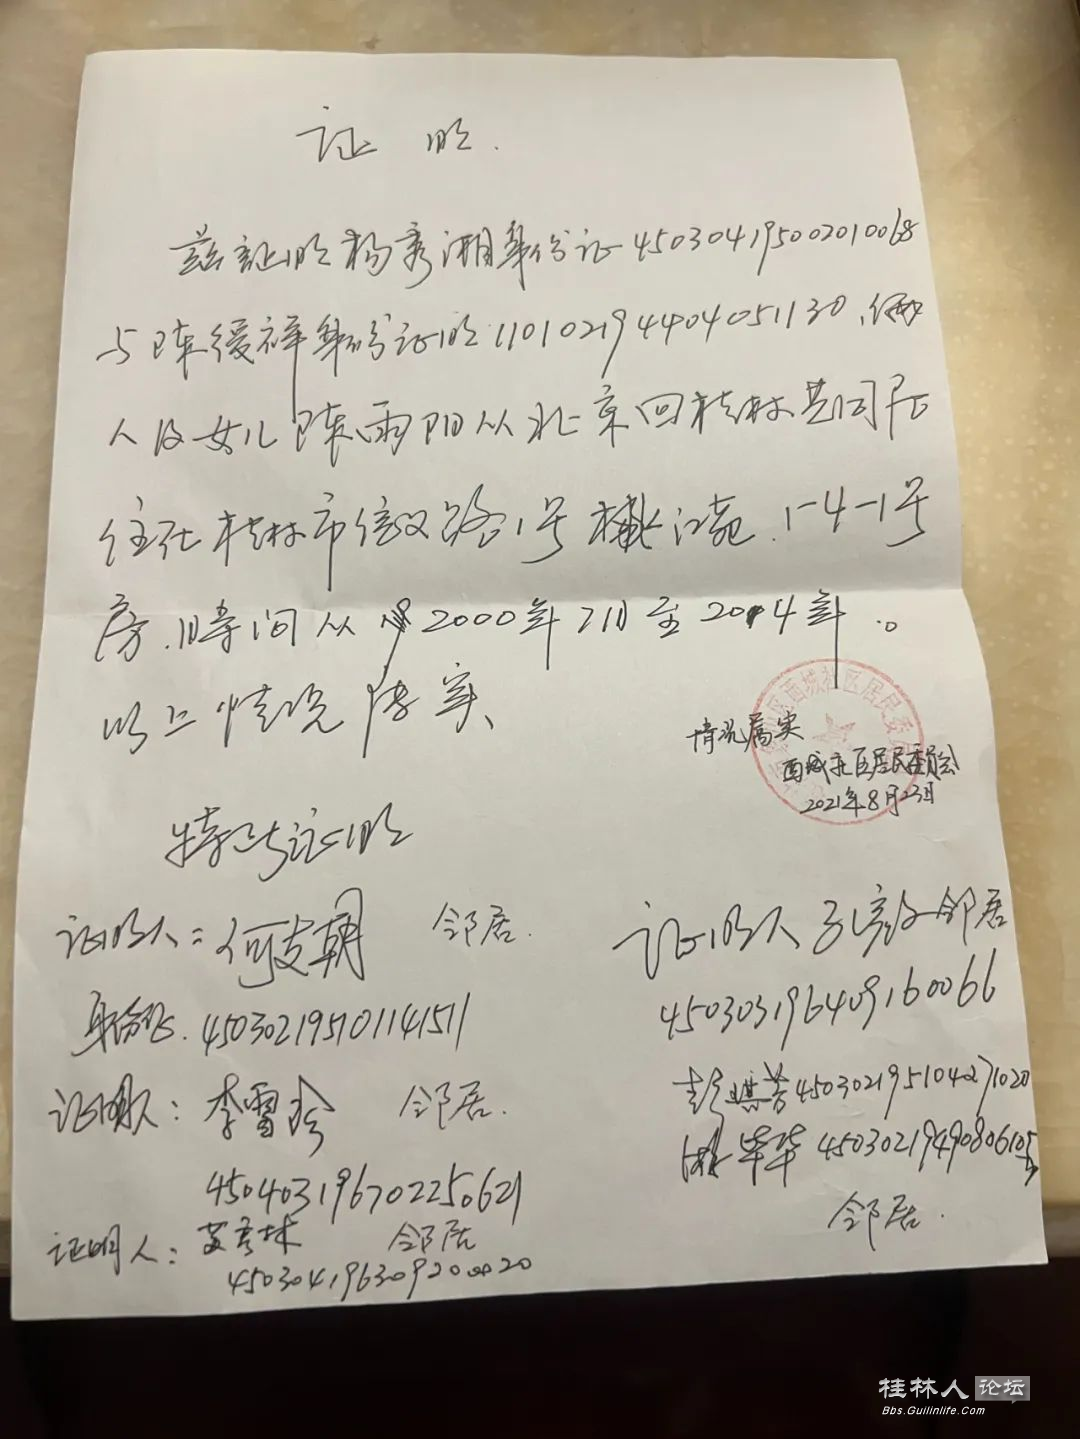 证明.
兹证明杨秀湘身份证450304195002010068
与陈绶祥身份证明110102194404051130,俩
人及女儿陈雨阳从北京回桂林共同居
住在桂林市信义路1号 江苑.1-4-1号
房.时间从2000年7月至2014年.。
以上情况属实、
情况属实
西城社区居民委员会
2021年8月23日
西城社区居民委
特此证明
证明人:何支朝 邻居.
身份证.450302195101141511
证明人 邻居
450303196409160066
证明人:李雪玲 邻居.
450403196702250621
彭 芳450302195104271020
华华 450302194908061
邻居.
证明人: 林 邻居
4503041963092000020
桂林人论坛
Bbs.Guilinlife.Com